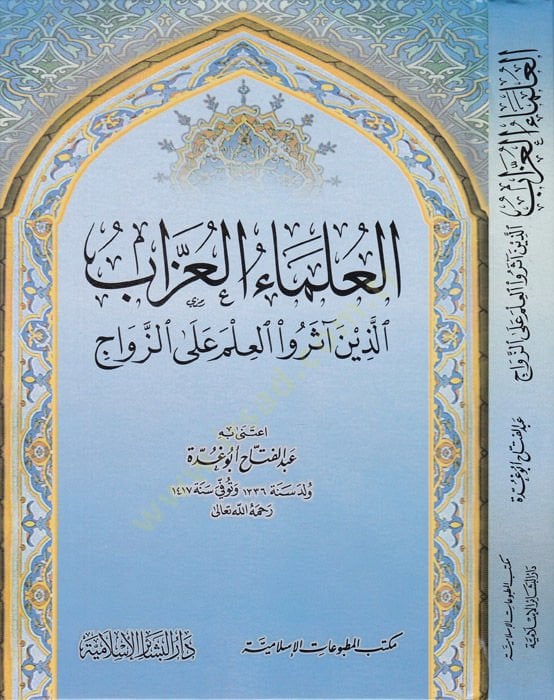 العُلمَاءُ العُزَّابُ
الَّذِينَ آثَرُوا العِلْمَ عَلَى الزَّوَاجِ
اعتنى به
عبد الفتاح أبو غدة
ولد سنة ١٣٣٦ وتوفي سنة ١٤١٧
رحمه الله تعالى
مكتب المطبوعات الإسلامية
دار البشائر الإسلامية
العُلمَاءُ العُزَّابُ
الَّذِينَ آثَرُوا العِلْمَ عَلَى الزَّوَاجِ
عبد الفتاح أبو غدة
مكتب المطبوعات الإسلامية
دار البشائر الإسلامية